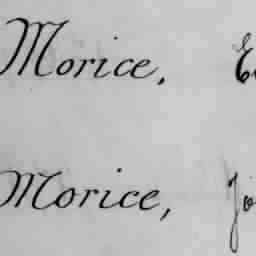 Morice,
Morice,